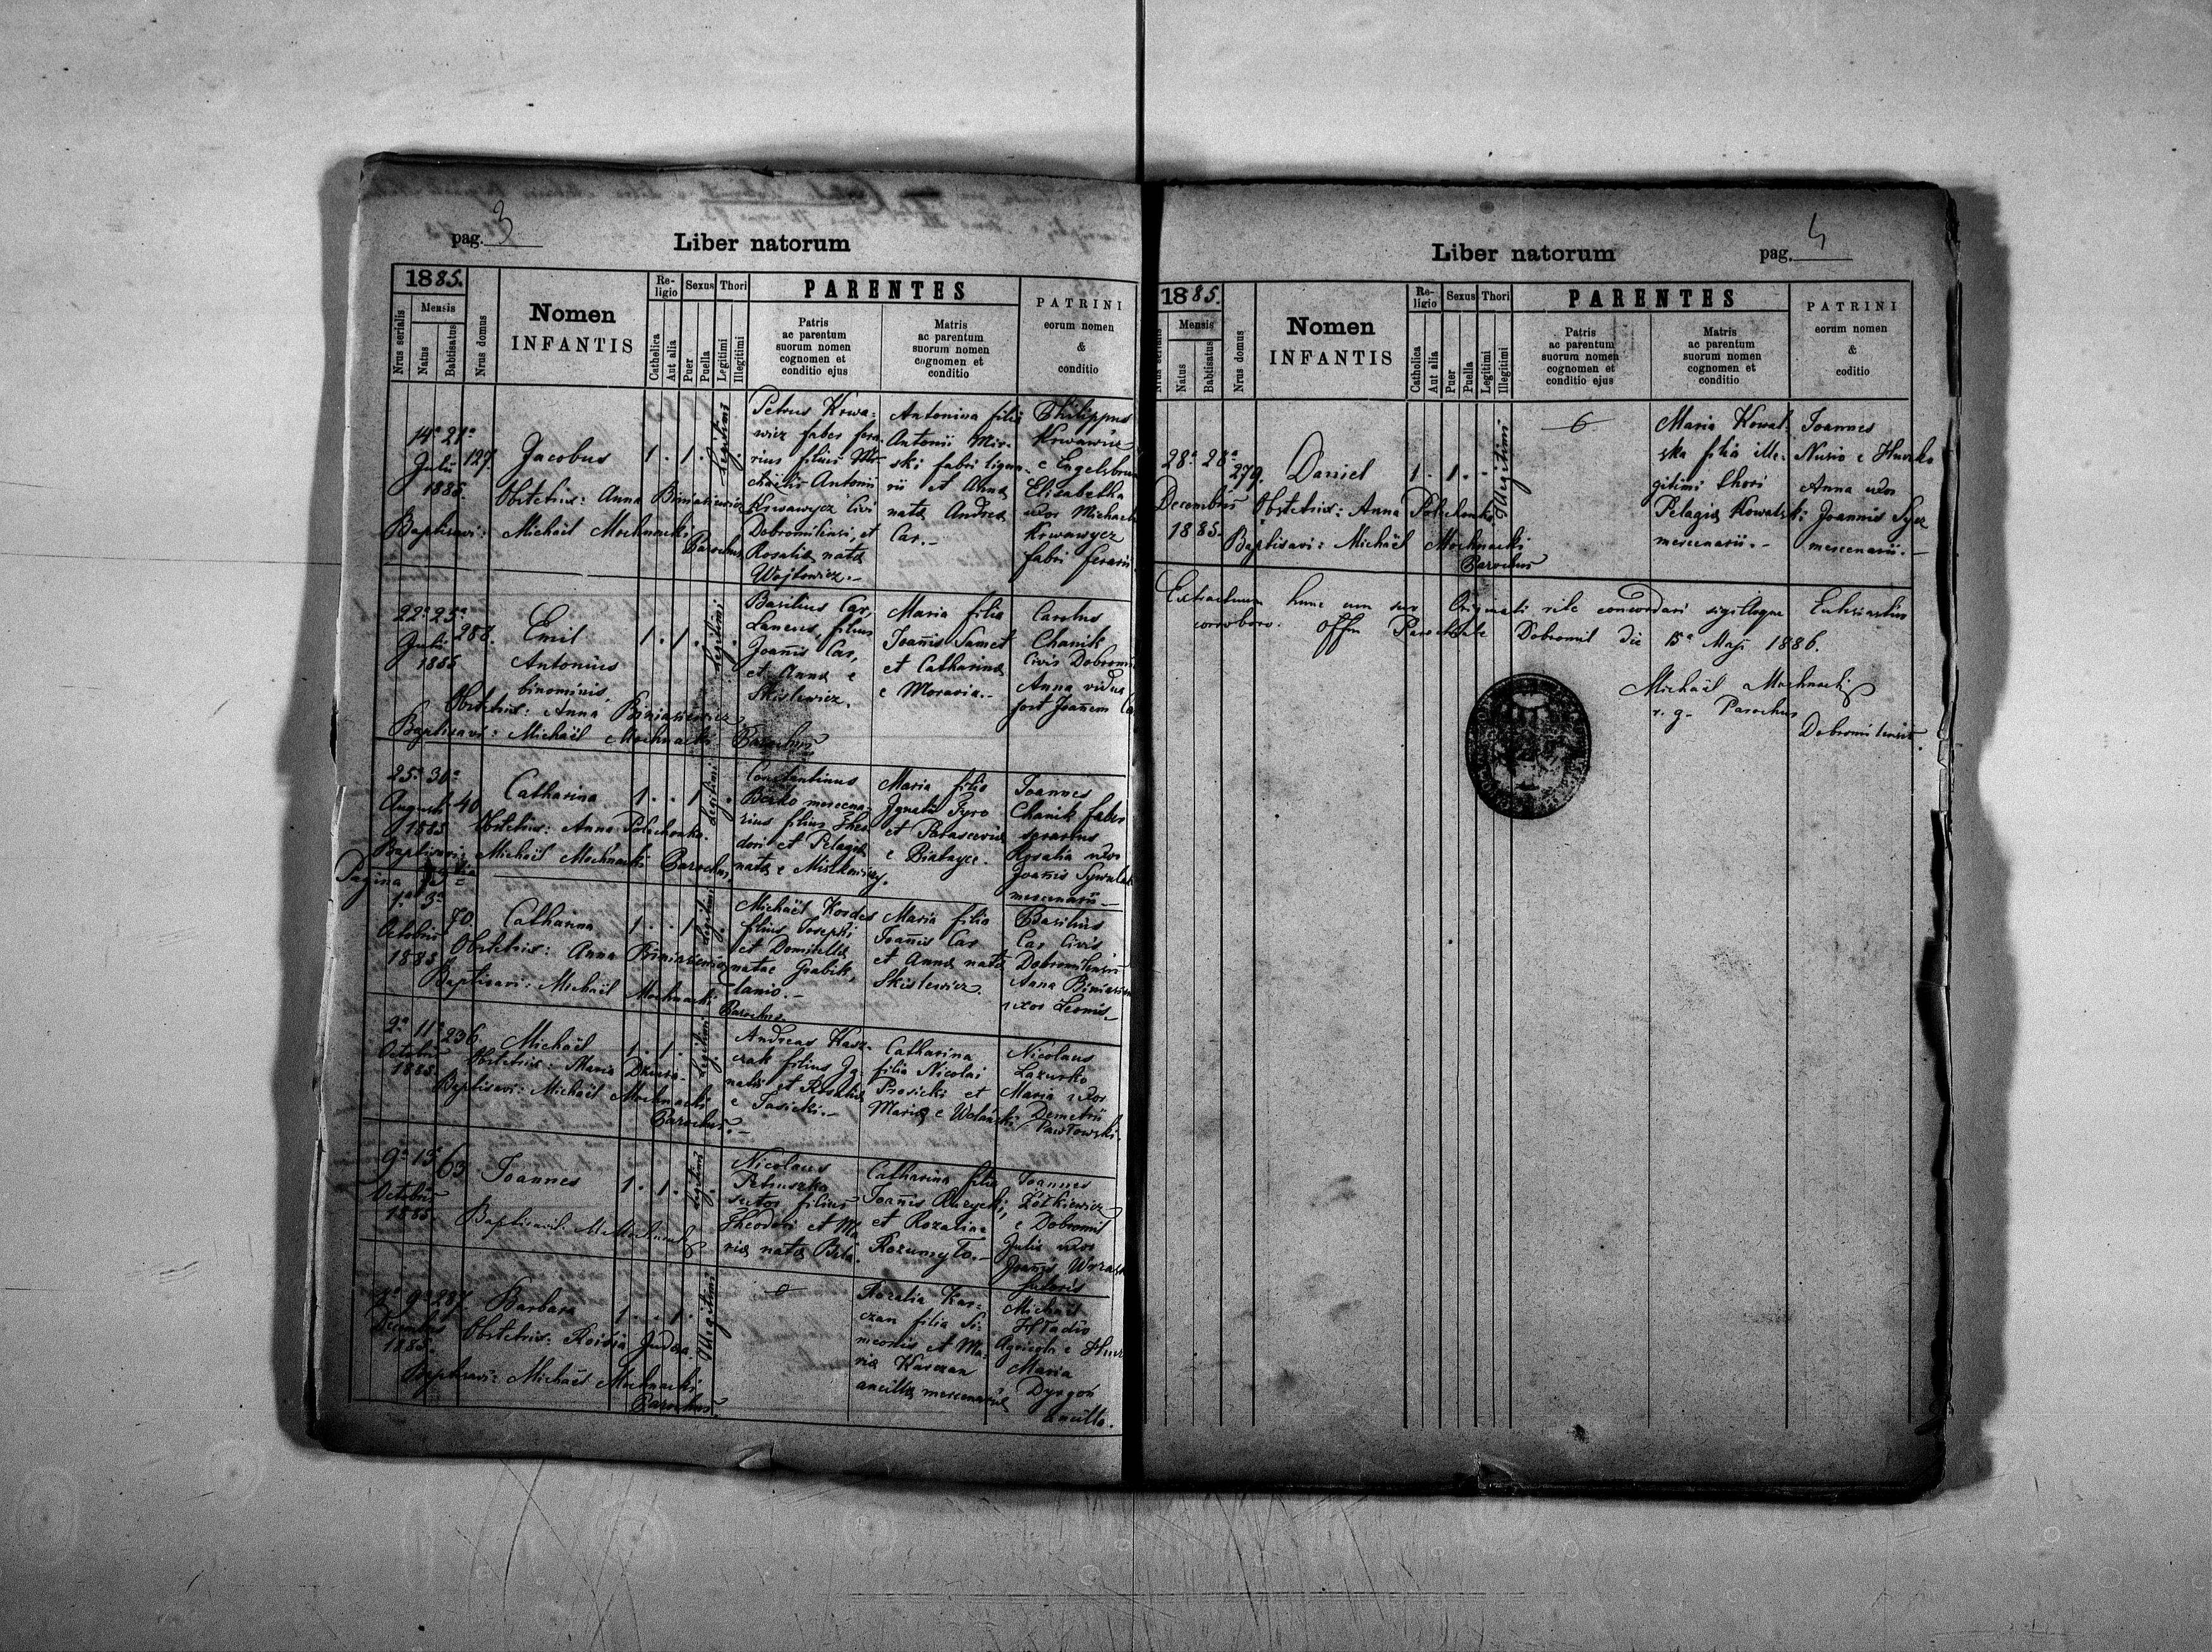 pag. 3
Liber natorum
1885.
Nrus serialis
Mensis
Natus
Babtisatus
Nrus domus
Nomen
INFANTIS
Religio
Catholica
Aut alia
Sexus
Puer
Puella
Thori
Legitimi
Illegitimi
PARENTES
Patris
ac parentum
suorum nomen
cognomen et
conditio ejus
Matris
ac parentum
suorum nomen
cognomen et
conditio
PATRINI
eorum nomen
&
conditio
14a 21a
Julii
1885.
127.
Jacobus
1. 1.
Legitimi
Obstetrix: Anna Biniasiewicz
Baptisavi: Michaël Mochnacki
Parochus
Petrus Krwa-
wicz faber fera-
rius filius Mi-
chaëlis Antonii
Krwawycz Civi
Dobromilensi, et
Rosalia nata
Wojtowicz.-
Antonina filia
Antonii Mir-
ski fabri ligna-
rii et Anna
nata Andrea
Car.-
Philippus
Krwawicz
e Engelsbru
Elisabetha
uxor Michaeli
Krwawycz
fabri ferarii
22a 25a
Julii
1885
288.
Emil
Antonius
binominis
1. 1.
Legitimi
Obstetrix: Anna Biniasiewicz
Baptisavi: Michaël Mochnacki Parochus
Basilius Car,
Laneus, filius
Joannis Car,
et Anna e
Skislewicz.
Maria filia
Joannis Samet
et Catharina
e Moravia.-
Carolus
Chanik
Civis Dobromi
Anna vidua
post Joanem Ca
25a 30a
August
1885
40
Catharina
1. . 1
Legitimi
Obstetrix: Anna Polochonka.
Baptisavi: Michaël Mochnacki Parochus.
Constantinus
Berko mercena-
rius filius Theo
dori et Pelagia
nata e Mislkewiczy.
Maria filia
Ignatii Tyro
et Parascevia
e Bialayce.
Joannes
Chanik faber
ferarius
Rosalia uxor
Joannis Sywulak
mercenarii-
Pagina
1a 3a
Octobris
1885
70.
Catharina
1. . 1.
Legitimi
Obstetrix: Anna Biniasiewicz
Baptisavi: Michaël Mochnacki
Parochus.
Michaël Kordes
filius Josephi
et Domicella
natae Grabik,
lanio.-
Maria filia
Joannis Car
et Anna nata
Skislewicz.
Basilius
Car Civis
Dobromilensis
Anna Biniasiew
uxor Leonis-
9a 11a
Octobris
1885.
236.
Michaël
1. 1.
Legitimi
Obstetrix: Maria Dziura-
Baptisavi: Michaël Mochnacki
Parochus.-
Andreas Kasz-
czak filius Ig-
natii et Rosalia
e Jasicki.-
Catharina
filia Nicolai
Prosicki et
Maria e Wolański
Nicolaus
Lazurko
Maria uxor
Demetrii
Pawłowski.
9a 13a
Octobris
1885
63
Joannes
1. 1.
Legitimi
Baptisavit M. Mochnacki
Nicolaus
Petruszka
sutor filius
Theodori et Ma
ria nata Bila.
Catharina filia
Joannis Ruzycki,
et Rozalia
Rozumyło.-
Joannes
Żołkiewicz
e Dobromil
Julia uxor
Joannis Wrzask
sutoris
9a
Decembr
1885.
287.
Barbara
1. . 1.
Illegitimi
Obstetrix: Roisia Judea.
Baptisavi: Michaël Mochnacki
Parochus.
Rozalia Kar-
czan filia Si-
meonis et Ma-
ria Karczan
ancilla mercenaria
Michaël
Hładio
Agricola e Hucz
Maria
Dyrgoń
ancilla.
Liber natorum
pag. 4
1885.
Nrus serialis
Mensis
Natus
Babtisatus
Nrus domus
Nomen
INFANTIS
Religio
Catholica
Aut alia
Sexus
Puer
Puella
Thori
Legitimi
Illegitimi
PARENTES
Patris
ac parentum
suorum nomen
cognomen et
conditio ejus
Matris
ac parentum
suorum nomen
cognomen et
conditio
PATRINI
eorum nomen
&
coditio
28a 28a
Decembris
1885.
279.
Daniel
1. 1. -
Illegitimi
Obstetrix: Anna Polochonka
Baptisavi: Michaël Mochnacki
Parochus
Maria Kowal-
ska filia ille-
gitimi thori
Pelagia Kowalski
mercenarii.-
Joannes
Nusio e Huczko
Anna uxor
Joannis Sycz
mercenarii.-
Extractum hunc cum suo Originali rite concordari sigilloque Ecclesiastico
corroboro. Offm Parochiale Dobromil die 15a Maji 1886.
Michaël Mochnacki
r. g. Parochus
Dobromilensis.